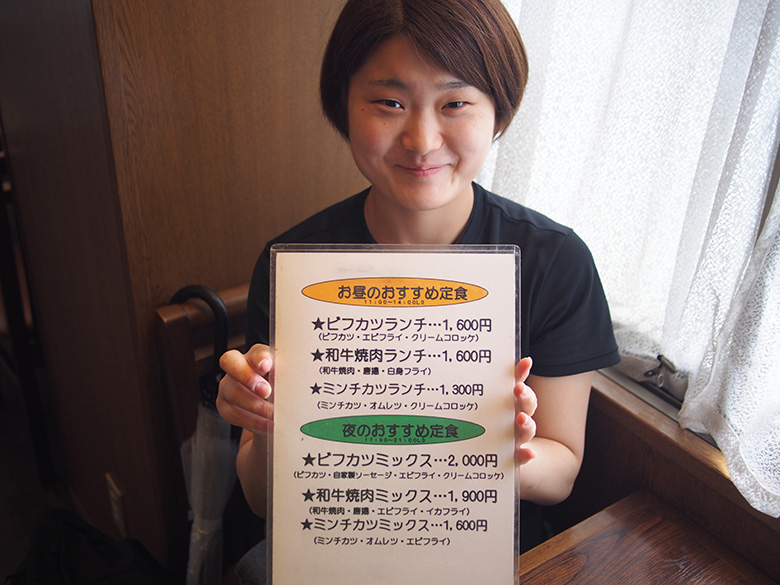 お昼のおすすめ定食
11:00~14:00LO
★ビフカツランチ…1,600円
(ビフカツ・エビフライ・クリームコロッケ)
★和牛焼肉ランチ…1,600円
(和牛焼肉・唐揚・白身フライ)
★ミンチカツランチ…1,300円
(ミンチカツ・オムレツ・クリームコロッケ)
夜のおすすめ定食
17:00~21:00LO
★ビフカツミックス…2,000円
(ビフカツ・自家製ソーセージ・エビフライ・クリームコロッケ)
★和牛焼肉ミックス…1,900円
(和牛焼肉・唐揚・エビフライ・イカフライ)
★ミンチカツミックス…1,600円
(ミンチカツ・オムレツ・エビフライ)